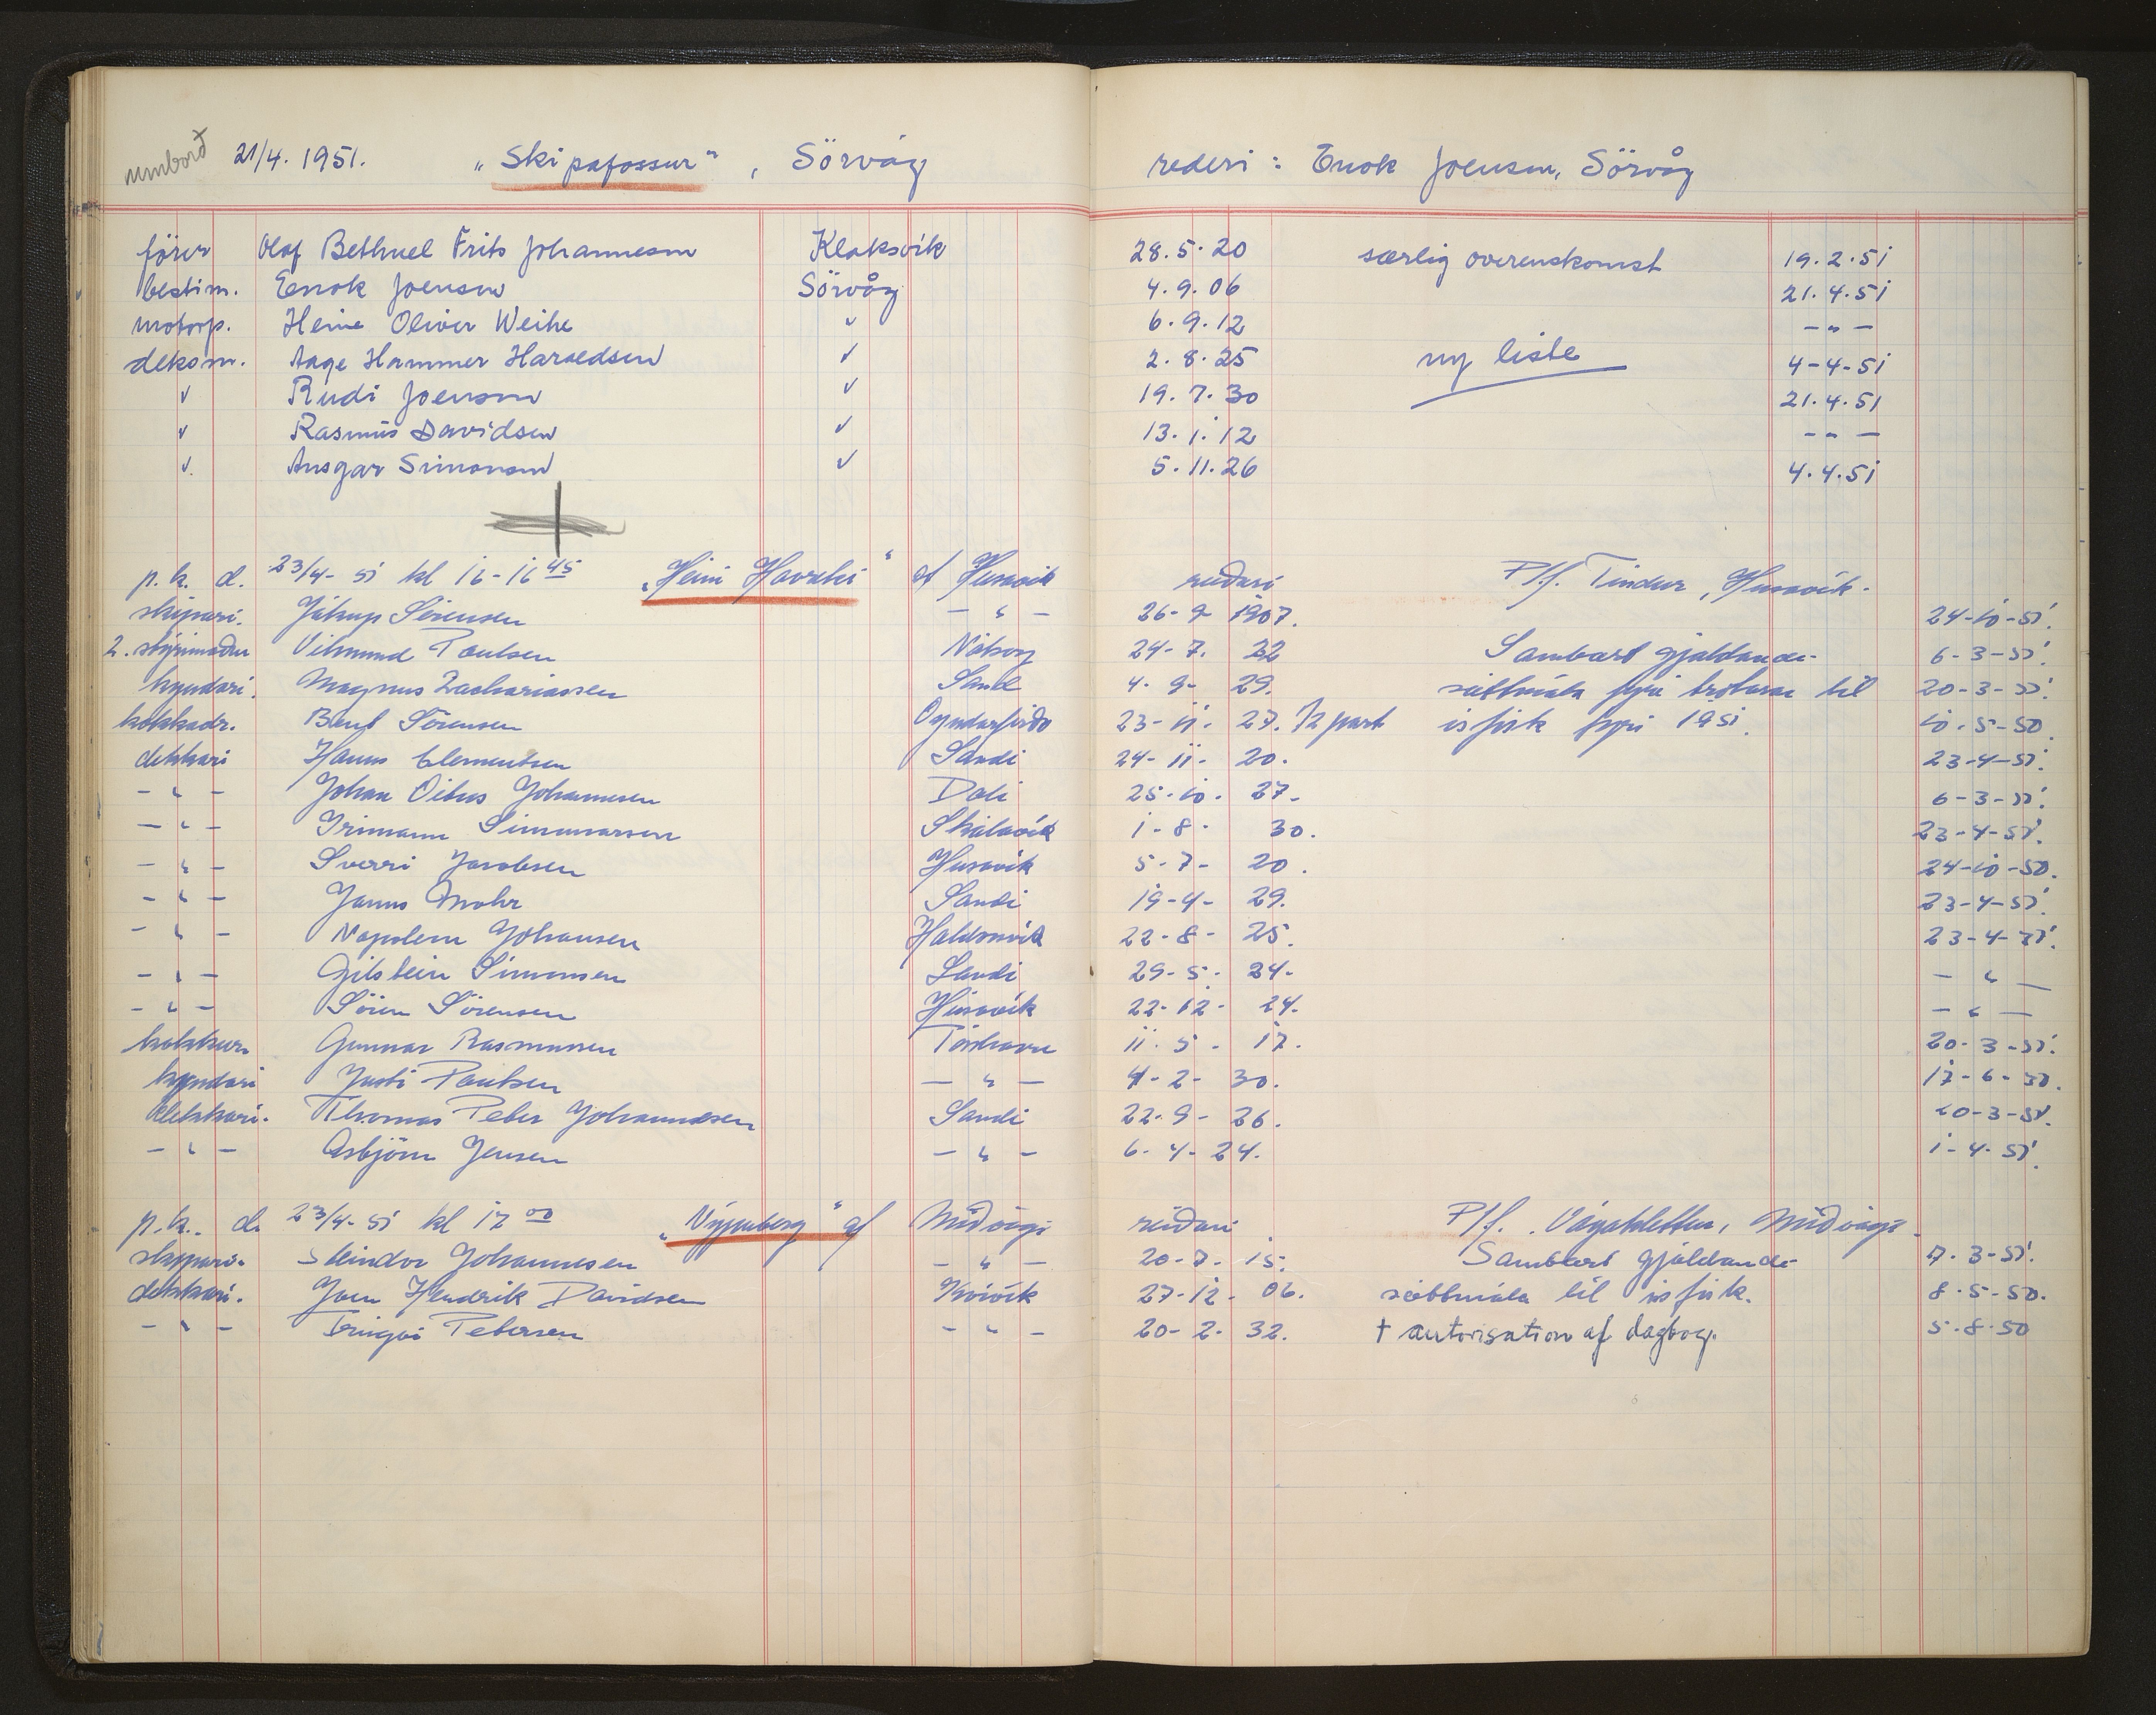 umborð 21/4. 1951. „Skipafossur“, Sörvág rederi: Enok Joensen, Sörvåg
förer Olaf Bethuel Frits Johannesen Klaksvik 28.5.20 særlig overenskomst 19.2.51
bestm. Enok Joensen Sörvåg 4.9.06 21.4.51
motorp. Heine Oliver Weihe ✓ 6.9.12 -"-
deksm. Aage Hammer Haraldsen ✓ 2.8.25 ny liste 4-4-51
✓ Rudi Joensen ✓ 19.7.30 21.4.51
✓ Rasmus Davidsen ✓ 13.1.12 -"-
✓ Ansgar Simonsen ✓ 5.11.26 4.4.51
p.k. d. 23/4-51 kl 16-16 45 „Heini Havreki“ af Husavik reiðari P/f. Tindur, Húsavík.
skipari. Jákup Sörensen -"- 26-9 1907. 24-10-51.
2. stýrimaður Vilmund Poulsen Nólsoy 24-7. 32 Sambart gjaldandi 6-3-51.
kyndari. Magnus Zachariassen Sand 4-9-29. sáttmála fyri trolarar til 20-3-51.
kokkadr. Berst Sörensen Oyndarfirdo 23-11-27. 1/2 part ísfisk fyri 1951. 10-5-50.
dekkari Hanus Clementsen Sandi 24-11-20. 23-4-51.
-"- Johan Oitus Johannesen Dali 25-10-27. 6-3-51.
-"- Trimann Simmarsen Skálavík 1-8-30. 23-4-51.
-"- Sverri Jacobsen Husavík 5-7-20. 24-10-50.
-"- Janus Mohr Sandi 19-4-29. 23-4-51.
-"- Napoleon Johansen Haldorsvik 22-8-25. 23-4-51.
-"- Gilstein Simonsen Sandi 29-5-24. -"-
-"- Sören Sörensen Húsavík 22-12-24. -"-
kokkur Gunnar Rasmussen Tórshavn 11-5-17. 20-3-51.
kyndari Justi Poulsen -"- 4-2-30. 17-6-50.
dekkari. Thomas Peter Johannesen Sandi 22-9-26. 20-3-51.
-"- Asbjörn Jensen -"- 6-4-24. 1-4-51.
p.k. d. 23/4-51 kl 17 00 „Nýpuberg“ af Miðvági reiðari P/f. Vágaklettur, Miðvági.
skipari. Steindor Johannesen -"- 20-7-15. Sambart gjaldandi 7-3-51.
dekkari. Joen Hendrik Davidsen Kvívík 27-12-06. sáttmála til ísfisk. 8-5-50.
-"- Tringvi Petersen -"- 20-2-32. + autorisation af dagbog. 5-8-50